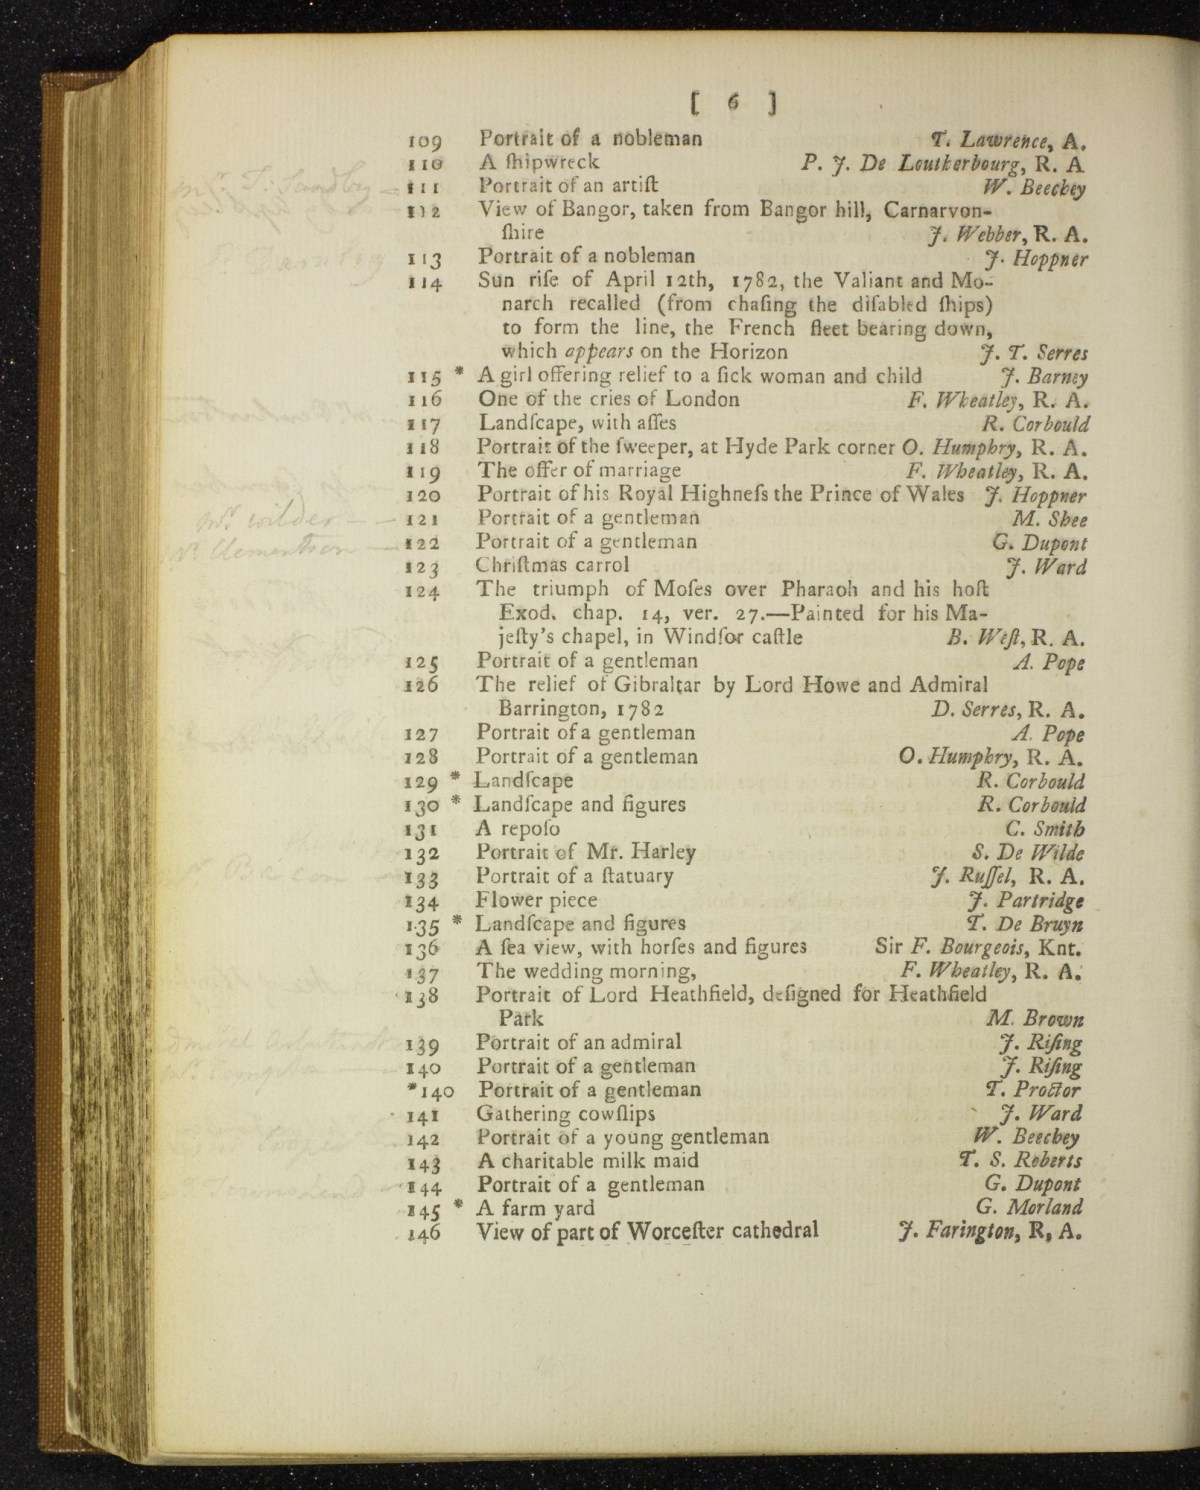 [ 6 ]
109 Portrait of a nobleman T. Lawrence, A.
110 A ſhipwreck P. J. De Loutherbourg, R. A
111 Portrait of an artiſt W. Beechey
112 View of Bangor, taken from Bangor hill, Carnarvon-
ſhire J. Webber, R. A.
113 Portrait of a nobleman J. Hoppner
114 Sun riſe of April 12th, 1782, the Valiant and Mo-
narch recalled (from chaſing the diſabled ſhips)
to form the line, the French fleet bearing down,
which appears on the Horizon J. T. Serres
115 * A girl offering relief to a ſick woman and child J. Barney
116 One of the cries of London F. Wheatley, R. A.
117 Landſcape, with aſſes R. Corbould
118 Portrait of the ſweeper, at Hyde Park corner O. Humphry, R. A.
119 The offer of marriage F. Wheatley, R. A.
120 Portrait of his Royal Highneſs the Prince of Wales J. Hoppner
Mr. wilder 121 Portrait of a gentleman M. Shee
Mr. Clementson 122 Portrait of a gentleman G. Dupont
123 Chriſtmas carrol J. Ward
124 The triumph of Moſes over Pharaoh and his hoſt
Exod. chap. 14, ver. 27.—Painted for his Ma-
jeſty's chapel, in Windſor caſtle B. Weſt, R. A.
125 Portrait of a gentleman A. Pope
126 The relief of Gibraltar by Lord Howe and Admiral
Barrington, 1782 D. Serres, R. A.
127 Portrait of a gentleman A. Pope
128 Portrait of a gentleman O. Humphry, R. A.
129 * Landſcape R. Corbould
130 * Landſcape and figures R. Corbould
131 A repoſo C. Smith
132 Portrait of Mr. Harley S. De Wilde
Bacon 133 Portrait of a ſtatuary J. Ruſſel, R. A.
134 Flower piece J. Partridge
135 * Landſcape and figures T. De Bruyn
136 A ſea view, with horſes and figures Sir F. Bourgeois, Knt.
137 The wedding morning, F. Wheatley, R. A.
138 Portrait of Lord Heathfield, deſigned for Heathfield
Park M. Brown
139 Portrait of an admiral J. Riſing
140 Portrait of a gentleman J. Riſing
*140 Portrait of a gentleman T. Proctor
141 Gathering cowſlips J. Ward
142 Portrait of a young gentleman W. Beechey
143 A charitable milk maid T. S. Roberts
Townshend 144 Portrait of a gentleman G. Dupont
145 * A farm yard G. Morland
146 View of part of Worceſter cathedral J. Farington, R, A.